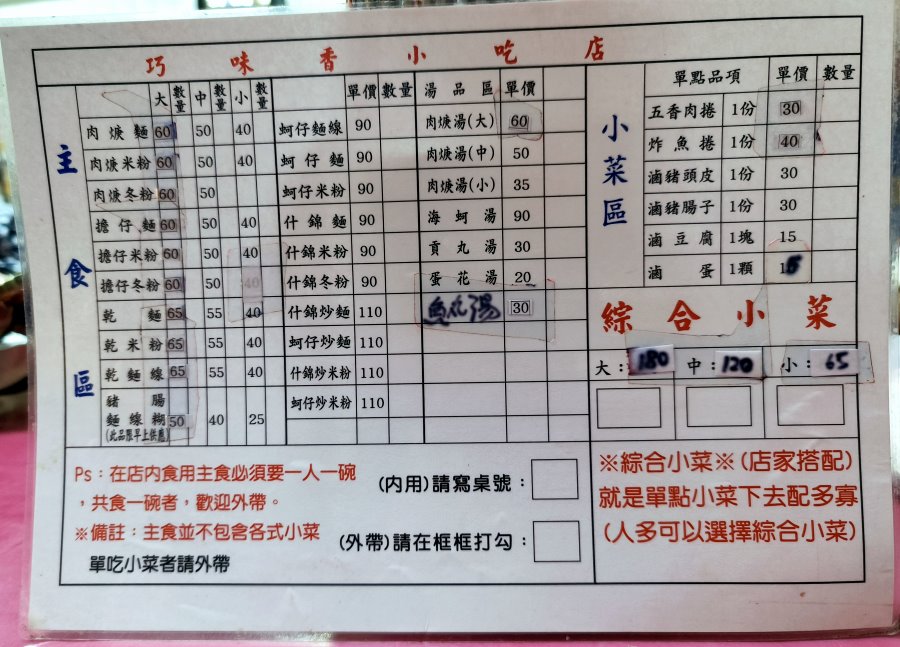 巧味香小吃店
主食區
大 數量 中 數量 小 數量
肉焿麵 60 50 40
肉焿米粉 60 50 40
肉焿冬粉 60 50
擔仔麵 60 50 40
擔仔米粉 60 50 40
擔仔冬粉 60 50 40
乾麵 65 55 40
乾米粉 65 55 40
乾麵線 65 55 40
豬腸
麵線糊 50 40 25
(此品限早上供應)
單價 數量
蚵仔麵線 90
蚵仔麵 90
蚵仔米粉 90
什錦麵 90
什錦米粉 90
什錦冬粉 90
什錦炒麵 110
蚵仔炒麵 110
什錦炒米粉 110
蚵仔炒米粉 110
湯品區 單價
肉焿湯(大) 60
肉焿湯(中) 50
肉焿湯(小) 35
海蚵湯 90
貢丸湯 30
蛋花湯 20
魚丸湯 30
小菜區
單點品項 單價 數量
五香肉捲 1份 30
炸魚捲 1份 40
滷豬頭皮 1份 30
滷豬腸子 1份 30
滷豆腐 1塊 15
滷蛋 1顆 15
綜合小菜
大：180 中：120 小：65
Ps：在店內食用主食必須要一人一碗
，共食一碗者，歡迎外帶。
※備註：主食並不包含各式小菜
單吃小菜者請外帶
(內用)請寫桌號：
(外帶)請在框框打勾：
※綜合小菜※(店家搭配)
就是單點小菜下去配多寡
(人多可以選擇綜合小菜)